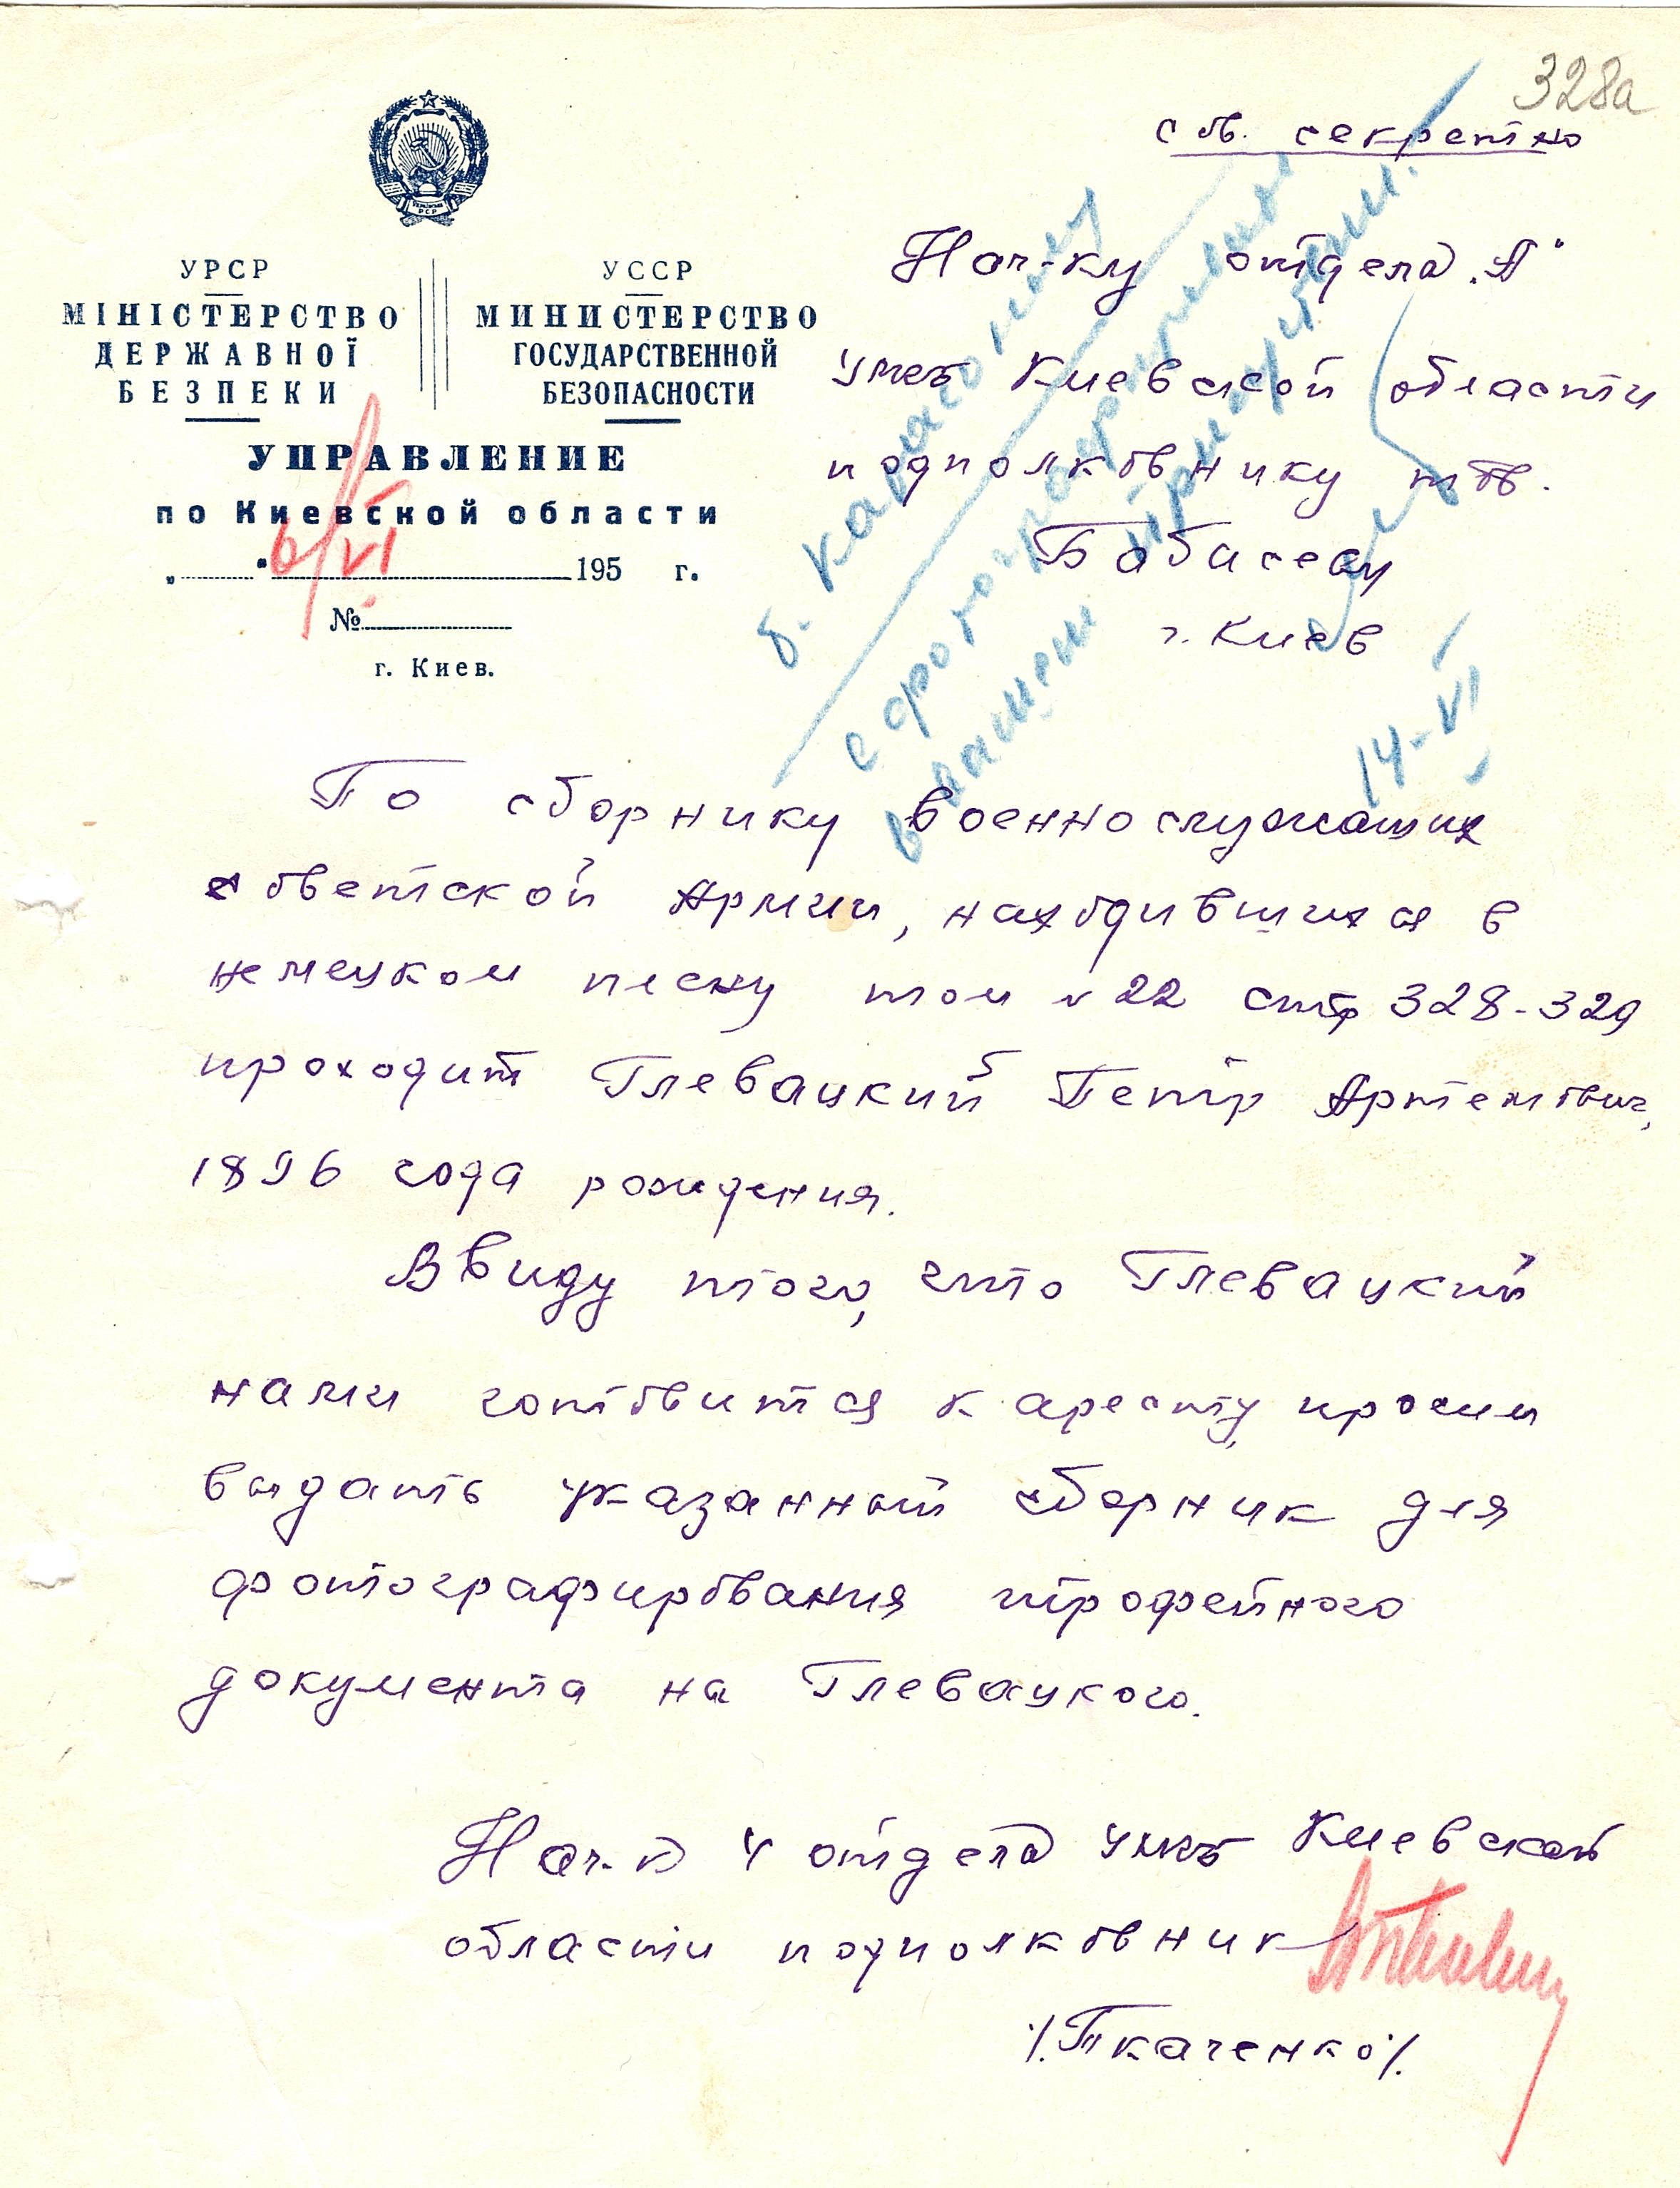 328а
сов. секретно
УРСР
МІНІСТЕРСТВО
ДЕРЖАВНОЇ
БЕЗПЕКИ
УССР
МИНИСТЕРСТВО
ГОСУДАРСТВЕННОЙ
БЕЗОПАСНОСТИ
УПРАВЛЕНИЕ
по Киевской области
6/VI
„ " 195 г.
№
г. Киев.
Нач-ку отдела „А"
УМГБ Киевской области
подполковнику тов.
г. Киев
с фотографированием
в нашем
14-VI
По сборнику военнослужащих
советской Армии, находившихся в
немецком плену том № 22 стр 328-329
проходит Глевацкий Петр Артемович,
1896 года рождения.
Ввиду того, что Глевацкий
нами готовится к аресту, просим
выдать указанный сборник для
фотографирования трофейного
документа на Глевацкого.
Нач-к 4 отдела УМГБ Киевской
области подполковник
/.Ткаченко/.